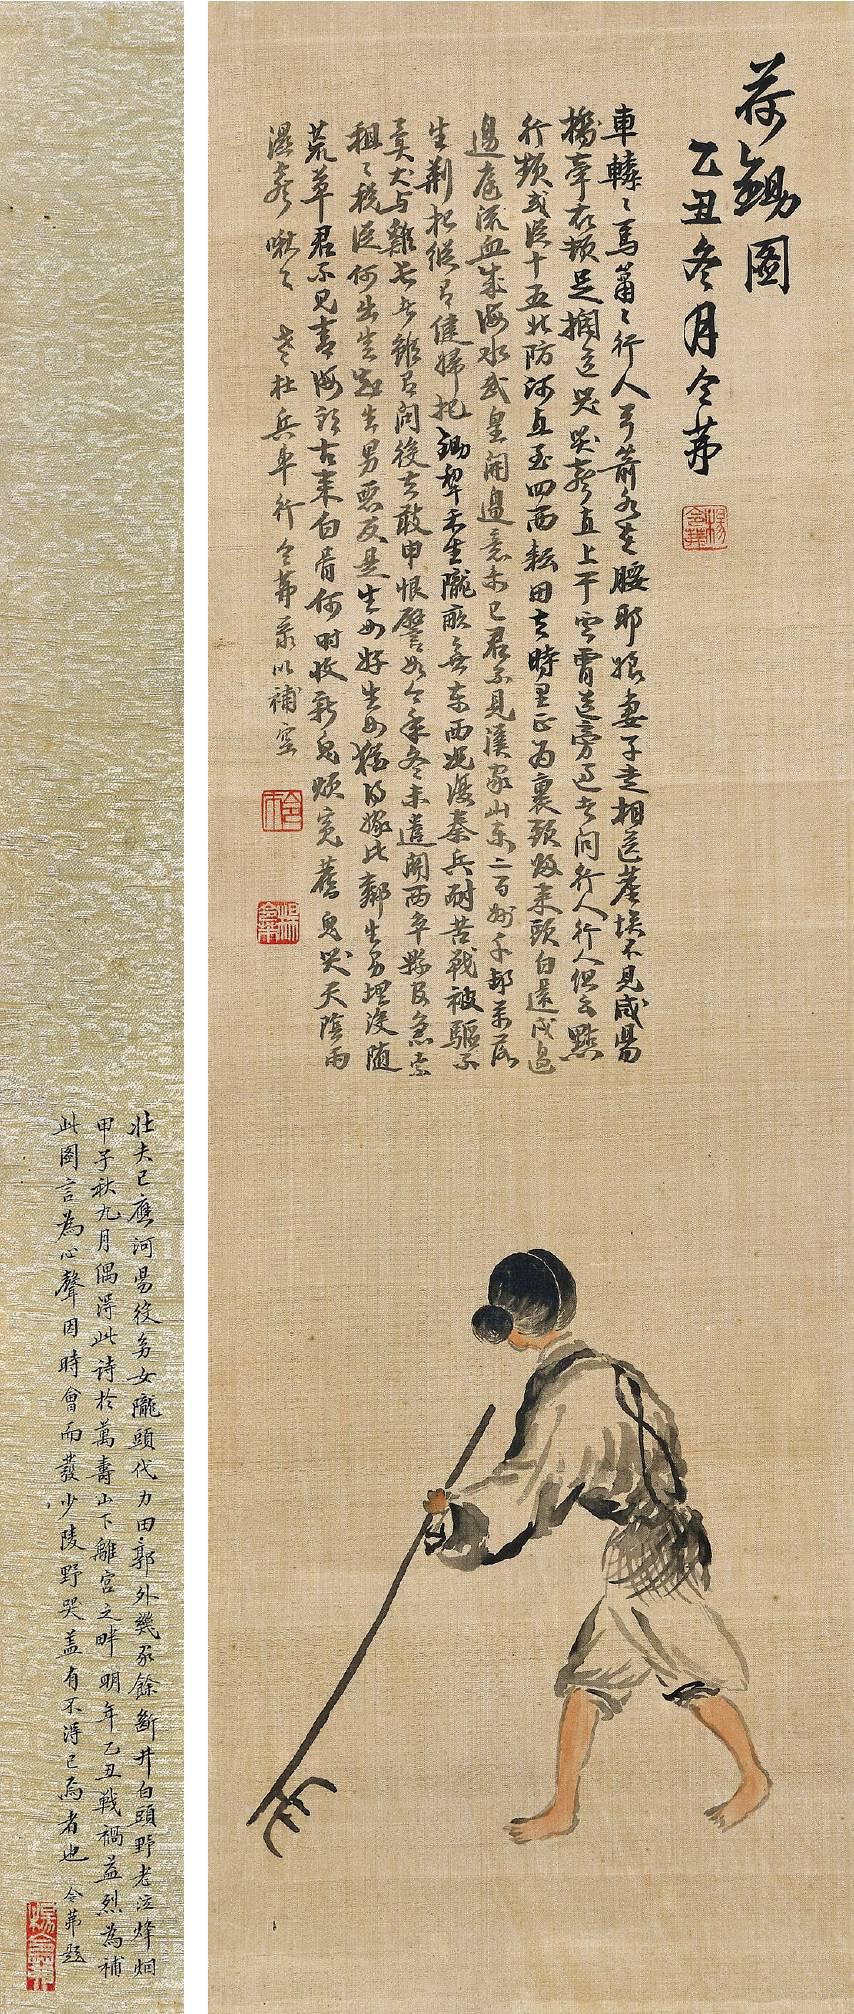 荷鋤圖
乙丑冬月令茀
楊令茀
車轔〻馬蕭〻行人弓箭各在腰耶娘妻子走相送塵埃不見咸陽
橋牽衣頓足攔道哭哭聲直上干雲霄道旁過者問行人行人但云點
行頻或從十五北防河直至四西耘田去時里正為裹頭歸來頭白還戍邊
邊庭流血成海水武皇開邊意未已君不見漢家山東二百州千邨萬落
生荊杞縱有健婦把鋤犁禾生隴畝無东西況復秦兵耐苦戰被驅不
異犬与雞長者雖有問役夫敢申恨譬如今年冬未遣關西卒縣官急索
租〻稅從何出生知生男惡反是生女好生女猶得嫁比鄰生男埋沒随
荒草君不見青海頭古來白骨何時收新鬼煩冤舊鬼哭天陰雨
濕聲啾〻 老杜兵車行 令茀录以補空
壯夫已應河陽役兒女隴頭代力田郭外幾家餘斷井白頭野老泣烽烟
甲子秋九月偶得此詩於萬壽山下離宮之畔明年乙丑戰禍益烈為補
此圖言為心聲因時會而發少陵野哭盖有不得已焉者也 令茀題
楊令茀